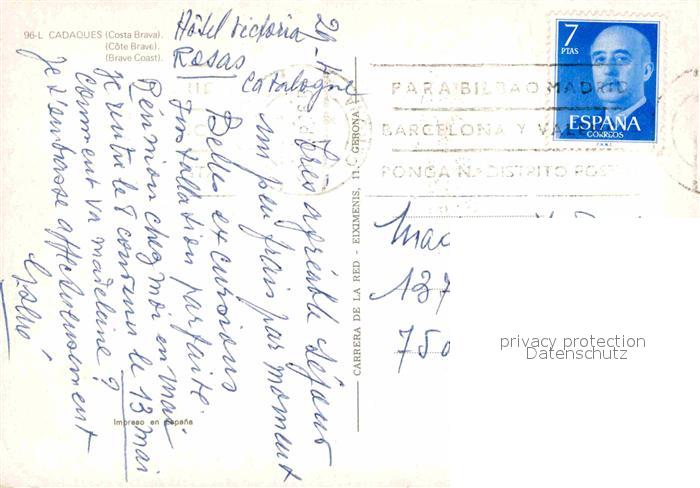 96-L CADAQUES (Costa Brava).
(Côte Brave).
(Brave Coast).
Hôtel Victoria
ROSAS
Catalogne
Très agréable séjour
un peu frais par moment
Belles excursions
Installation parfaite.
Réunion chez moi en mai
je rentre le 8 convenu le 13 mai
Comment va Madeleine?
Je t'embrasse affectueusement
Impreso en España
CARRERA DE LA RED - EIXIMENIS, 11. GERONA
7
PTAS
ESPAÑA
CORREOS
F.N.M.T.
PARA BILBAO MADRID
BARCELONA Y VAL
PONGA N.º DISTRITO POSTAL
137
750
privacy protection
Datenschutz